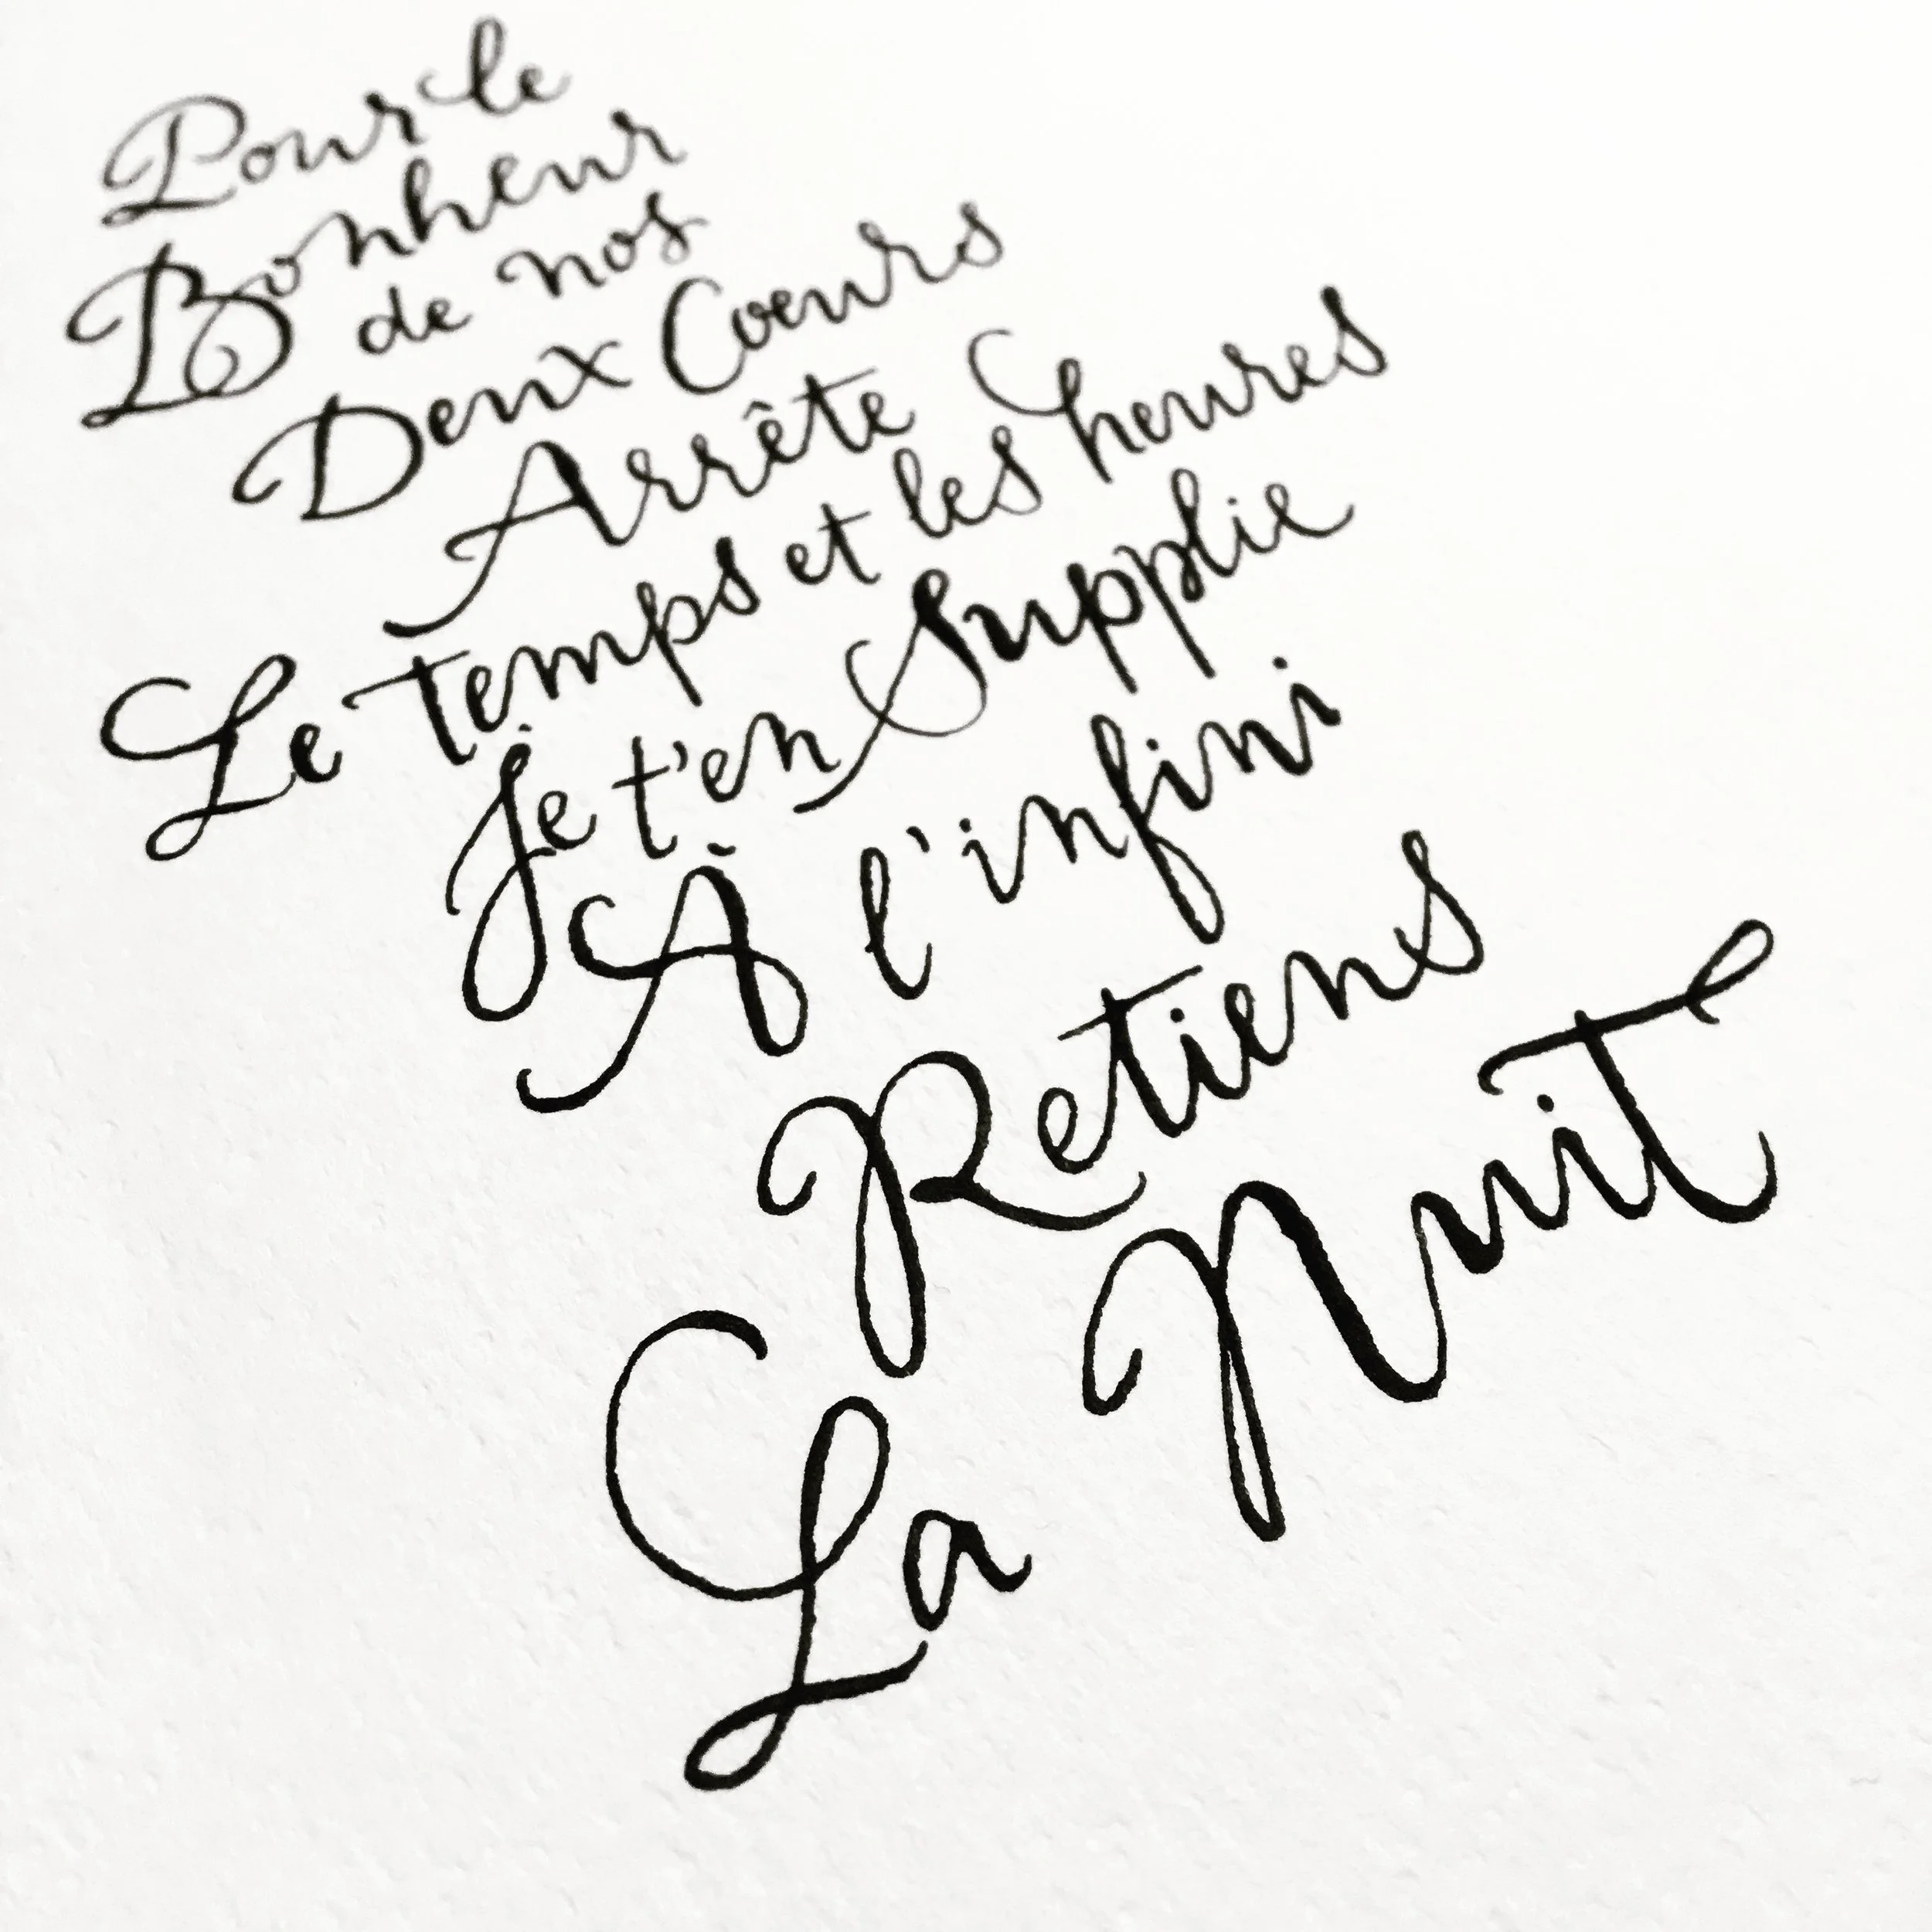 Pour le
Bonheur
de nos
Deux Cœurs
Arrête
Le temps et les heures
Je t'en Supplie
À l'infini
Retiens
La Nuit